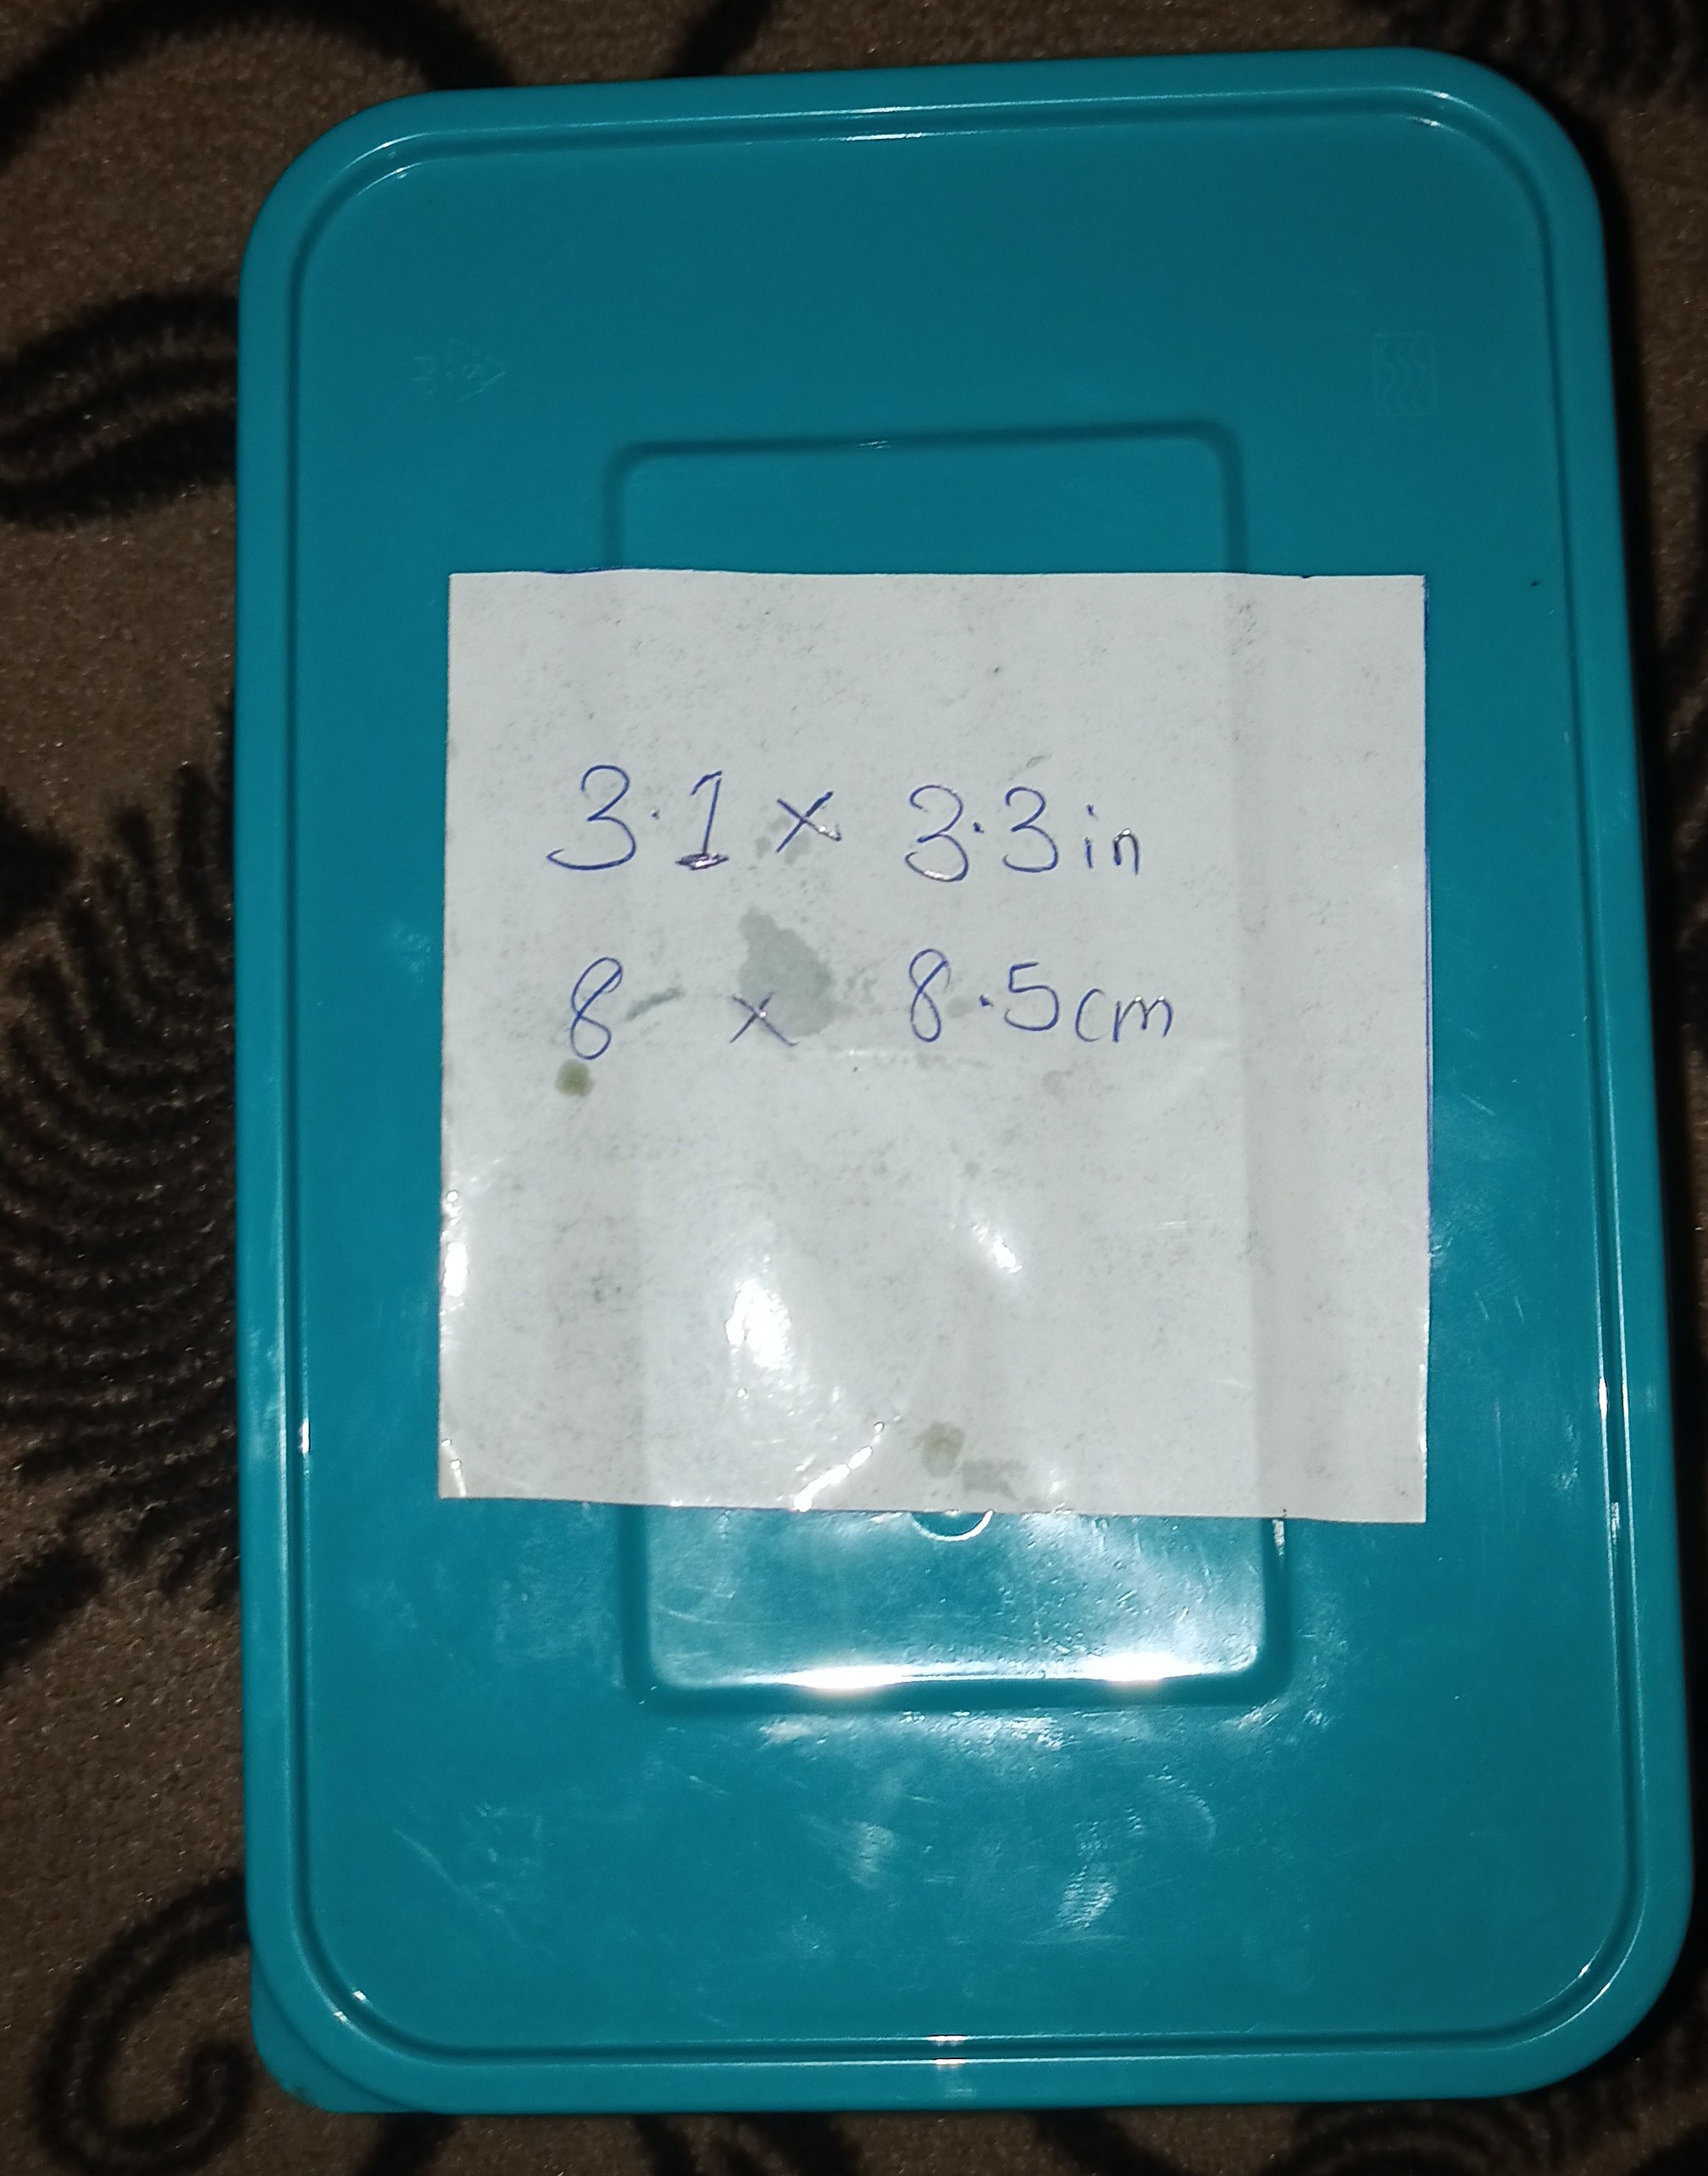 3.1 x 3.3in
8 x 8.5cm